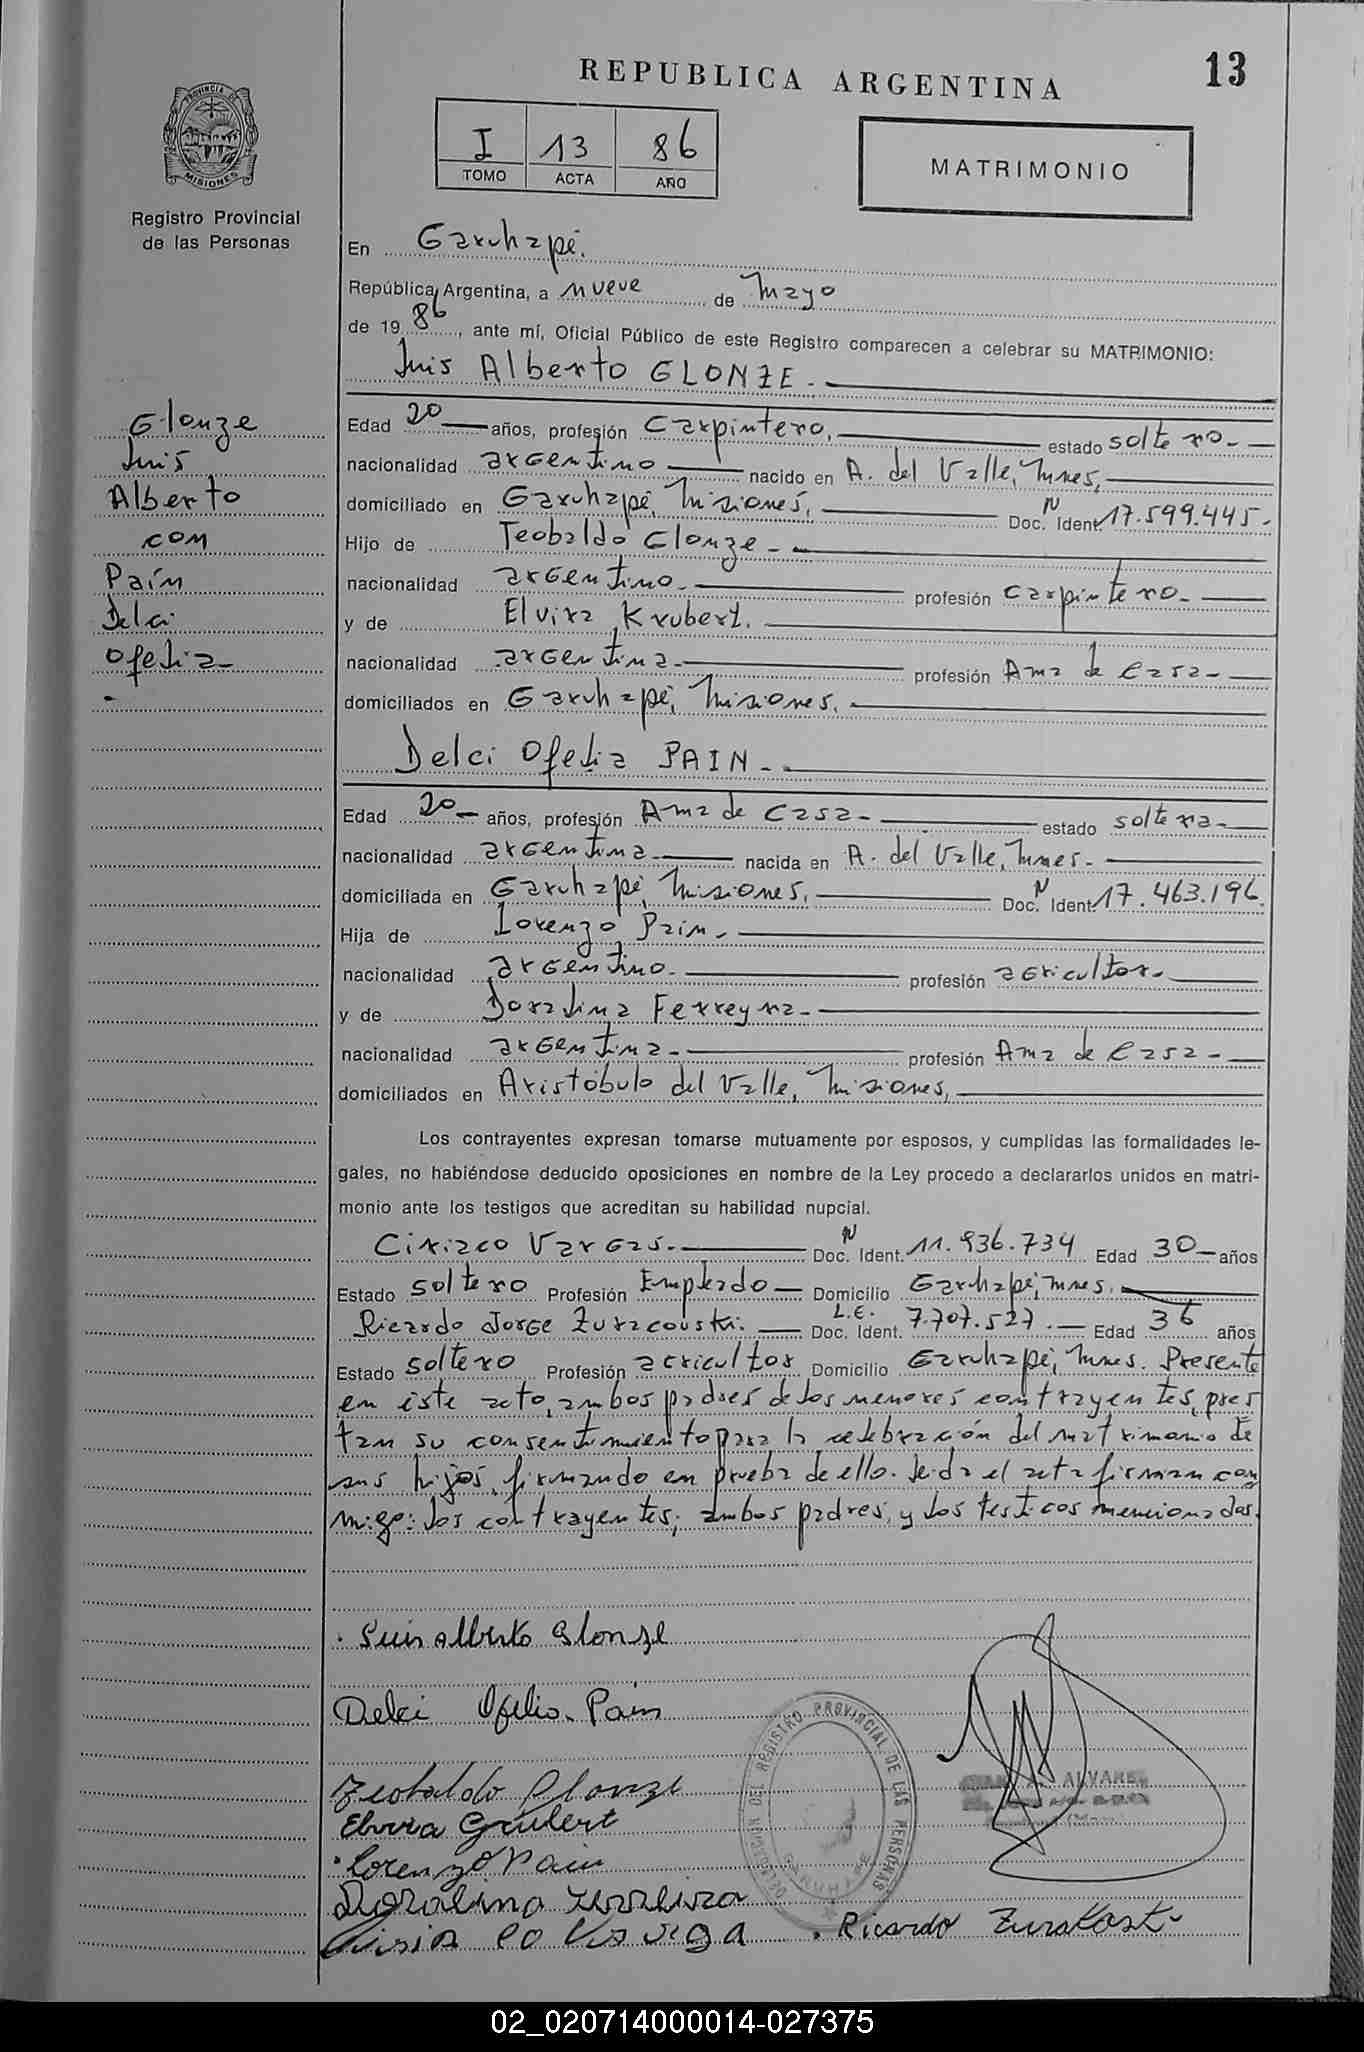 REPUBLICA ARGENTINA
13
PROVINCIA DE MISIONES
Registro Provincial
de las Personas
I 13 86
TOMO ACTA AÑO
MATRIMONIO
En Garuhapé.
República Argentina, a nueve de Mayo
de 1986, ante mí, Oficial Público de este Registro comparecen a celebrar su MATRIMONIO:
Luis Alberto GLONZE.
Glonze
Luis
Alberto
con
Paín
Delci
Ofelia
Edad 20 años, profesión Carpintero, estado soltero
nacionalidad argentino nacido en A. del Valle, Mnes,
domiciliado en Garuhapé, Misiones, Doc. N Ident. 17.599.445
Hijo de Teobaldo Glonze
nacionalidad argentino profesión carpintero
y de Elvira Krubert.
nacionalidad argentina profesión Ama de Casa
domiciliados en Garuhapé, Misiones.
Delci Ofelia PAIN
Edad 20 años, profesión Ama de Casa estado soltera
nacionalidad argentina nacida en A. del Valle, Mnes.
domiciliada en Garuhapé, Misiones, Doc. N Ident. 17.463.196.
Hija de Lorenzo Pain
nacionalidad argentino profesión agricultor
y de Doralina Ferreyra
nacionalidad argentina profesión Ama de Casa
domiciliados en Aristóbulo del Valle, Misiones,
Los contrayentes expresan tomarse mutuamente por esposos, y cumplidas las formalidades le-
gales, no habiéndose deducido oposiciones en nombre de la Ley procedo a declararlos unidos en matri-
monio ante los testigos que acreditan su habilidad nupcial.
Ciriaco Vargas. Doc. N Ident. 11.936.734 Edad 30 años
Estado soltero Profesión Empleado Domicilio Garuhapé, Mnes.
Ricardo Jorge Zuracouski. Doc. L.E. Ident. 7.707.527. Edad 36 años
Estado soltero Profesión agricultor Domicilio Garuhapé, Mnes. Presente
en éste acto, ambos padres de los menores contrayentes, pres
tan su consentimiento para la celebración del matrimonio de
sus hijos, firmando en prueba de ello. Leída el acta firman con
migo: los contrayentes; ambos padres, y los testigos mencionados.
Luis Alberto Glonze
Delci Ofelia Pain
Teobaldo Glonze
Elvira Grubert
Lorenzo Pain
Doralina Ferreira
DELEGACION DEL REGISTRO PROVINCIAL DE LAS PERSONAS
GARUHAPE
ALVAREZ
Ricardo Zurakoski
02_020714000014-027375